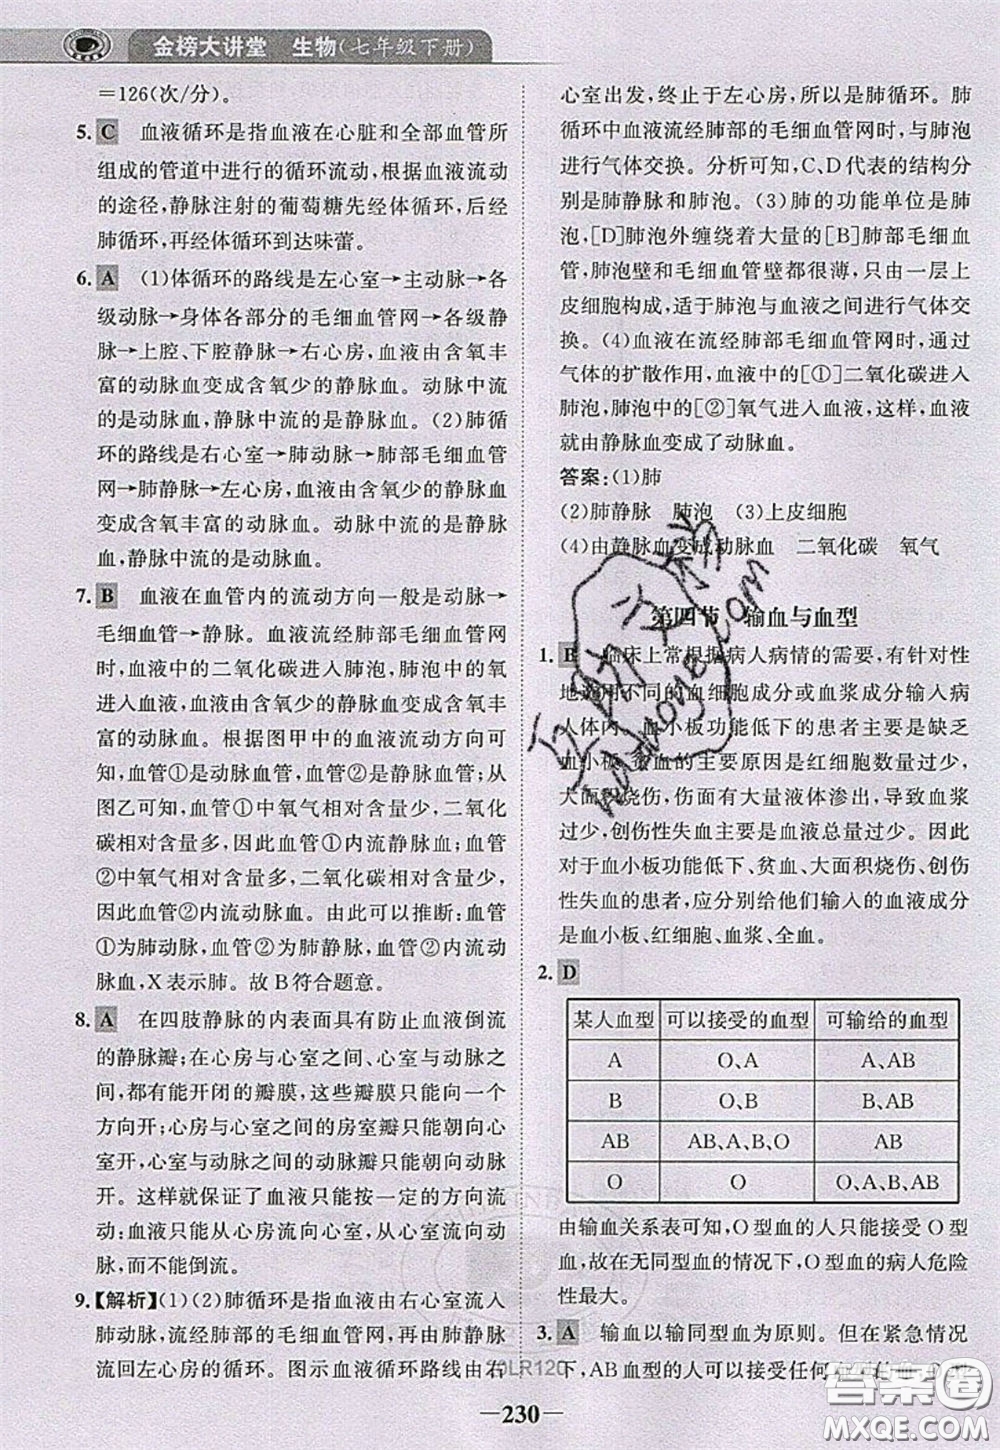 金榜大讲堂 生物(七年级下册)
＝126(次/分)。
5. C 血液循环是指血液在心脏和全部血管所
组成的管道中进行的循环流动,根据血液流动
的途径,静脉注射的葡萄糖先经体循环,后经
肺循环,再经体循环到达味蕾。
6. A (1)体循环的路线是左心室→主动脉→各
级动脉→身体各部分的毛细血管网→各级静
脉→上腔、下腔静脉→右心房,血液由含氧丰
富的动脉血变成含氧少的静脉血。动脉中流
的是动脉血,静脉中流的是静脉血。(2)肺循
环的路线是右心室→肺动脉→肺部毛细血管
网→肺静脉→左心房,血液由含氧少的静脉血
变成含氧丰富的动脉血。动脉中流的是静脉
血,静脉中流的是动脉血。
7. B 血液在血管内的流动方向一般是动脉→
毛细血管→静脉。血液流经肺部毛细血管网
时,血液中的二氧化碳进入肺泡,肺泡中的氧
气进入血液,血液由含氧少的静脉血变成含氧
丰富的动脉血。根据图甲中的血液流动方向可
知,血管①是动脉血管,血管②是静脉血管;从
图乙可知,血管①中氧气相对含量少,二氧化
碳相对含量多,因此血管①内流静脉血;血管
②中氧气相对含量多,二氧化碳相对含量少,
因此血管②内流动脉血。由此可以推断:血管
①为肺动脉,血管②为肺静脉,血管②内流动
脉血,X表示肺。故B符合题意。
8. A 在四肢静脉的内表面具有防止血液倒流
的静脉瓣;在心房与心室之间、心室与动脉之间,
都有能开闭的瓣膜,这些瓣膜只能朝一个方向
打开。心房与心室之间的房室瓣只能朝向心
室开,心室与动脉之间的动脉瓣只能朝向动脉
开。这样就保证了血液只能按一定的方向流
动:血液只能从心房流向心室,从心室流向动
脉,而不能倒流。
9.【解析】(1)(2)肺循环是指血液由右心室流入
肺动脉,流经肺部毛细血管网,再由肺静脉
流回左心房的循环。图示血液循环路线由右
心室出发,终止于左心房,所以是肺循环。肺
循环中血液流经肺部的毛细血管网时,与肺泡
进行气体交换。分析可知,C、D代表的结构分
别是肺静脉和肺泡。(3)肺的功能单位是肺
泡,[D]肺泡外缠绕着大量的[B]肺部毛细血
管,肺泡壁和毛细血管壁都很薄,只由一层上
皮细胞构成,适于肺泡与血液之间进行气体交
换。(4)血液在流经肺部毛细血管网时,通过
气体的扩散作用,血液中的[①]二氧化碳进入
肺泡,肺泡中的[②]氧气进入血液,这样,血液
就由静脉血变成了动脉血。
答案:(1)肺
(2)肺静脉 肺泡 (3)上皮细胞
(4)由静脉血变成动脉血 二氧化碳 氧气
第四节 输血与血型
1. B 临床上常根据病人病情的需要,有针对性
地选用不同的血细胞成分或血浆成分输入病
人体内。血小板功能低下的患者主要是缺乏
血小板,贫血的主要原因是红细胞数量过少,
大面积烧伤,伤面有大量液体渗出,导致血浆
过少,创伤性失血主要是血液总量过少。因此
对于血小板功能低下、贫血、大面积烧伤、创伤
性失血的患者,应分别给他们输入的血液成分
是血小板、红细胞、血浆、全血。
2. D
某人血型 可以接受的血型 可输给的血型
A O、A A、AB
B O、B B、AB
AB AB、A、B、O AB
O O O、A、B、AB
由输血关系表可知,O型血的人只能接受O型
血,故在无同型血的情况下,O型血的病人危险
性最大。
3. A 输血以输同型血为原则。但在紧急情况
下,AB血型的人可以接受任何
20LR120
230
答案圈
MXQE.COM